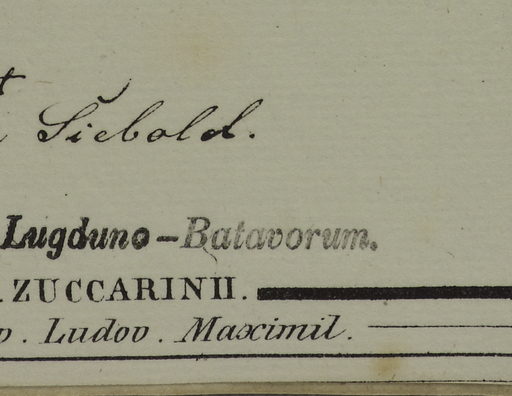 Siebold.
Lugduno-Batavorum.
ZUCCARINII.
Ludov. Maximil.